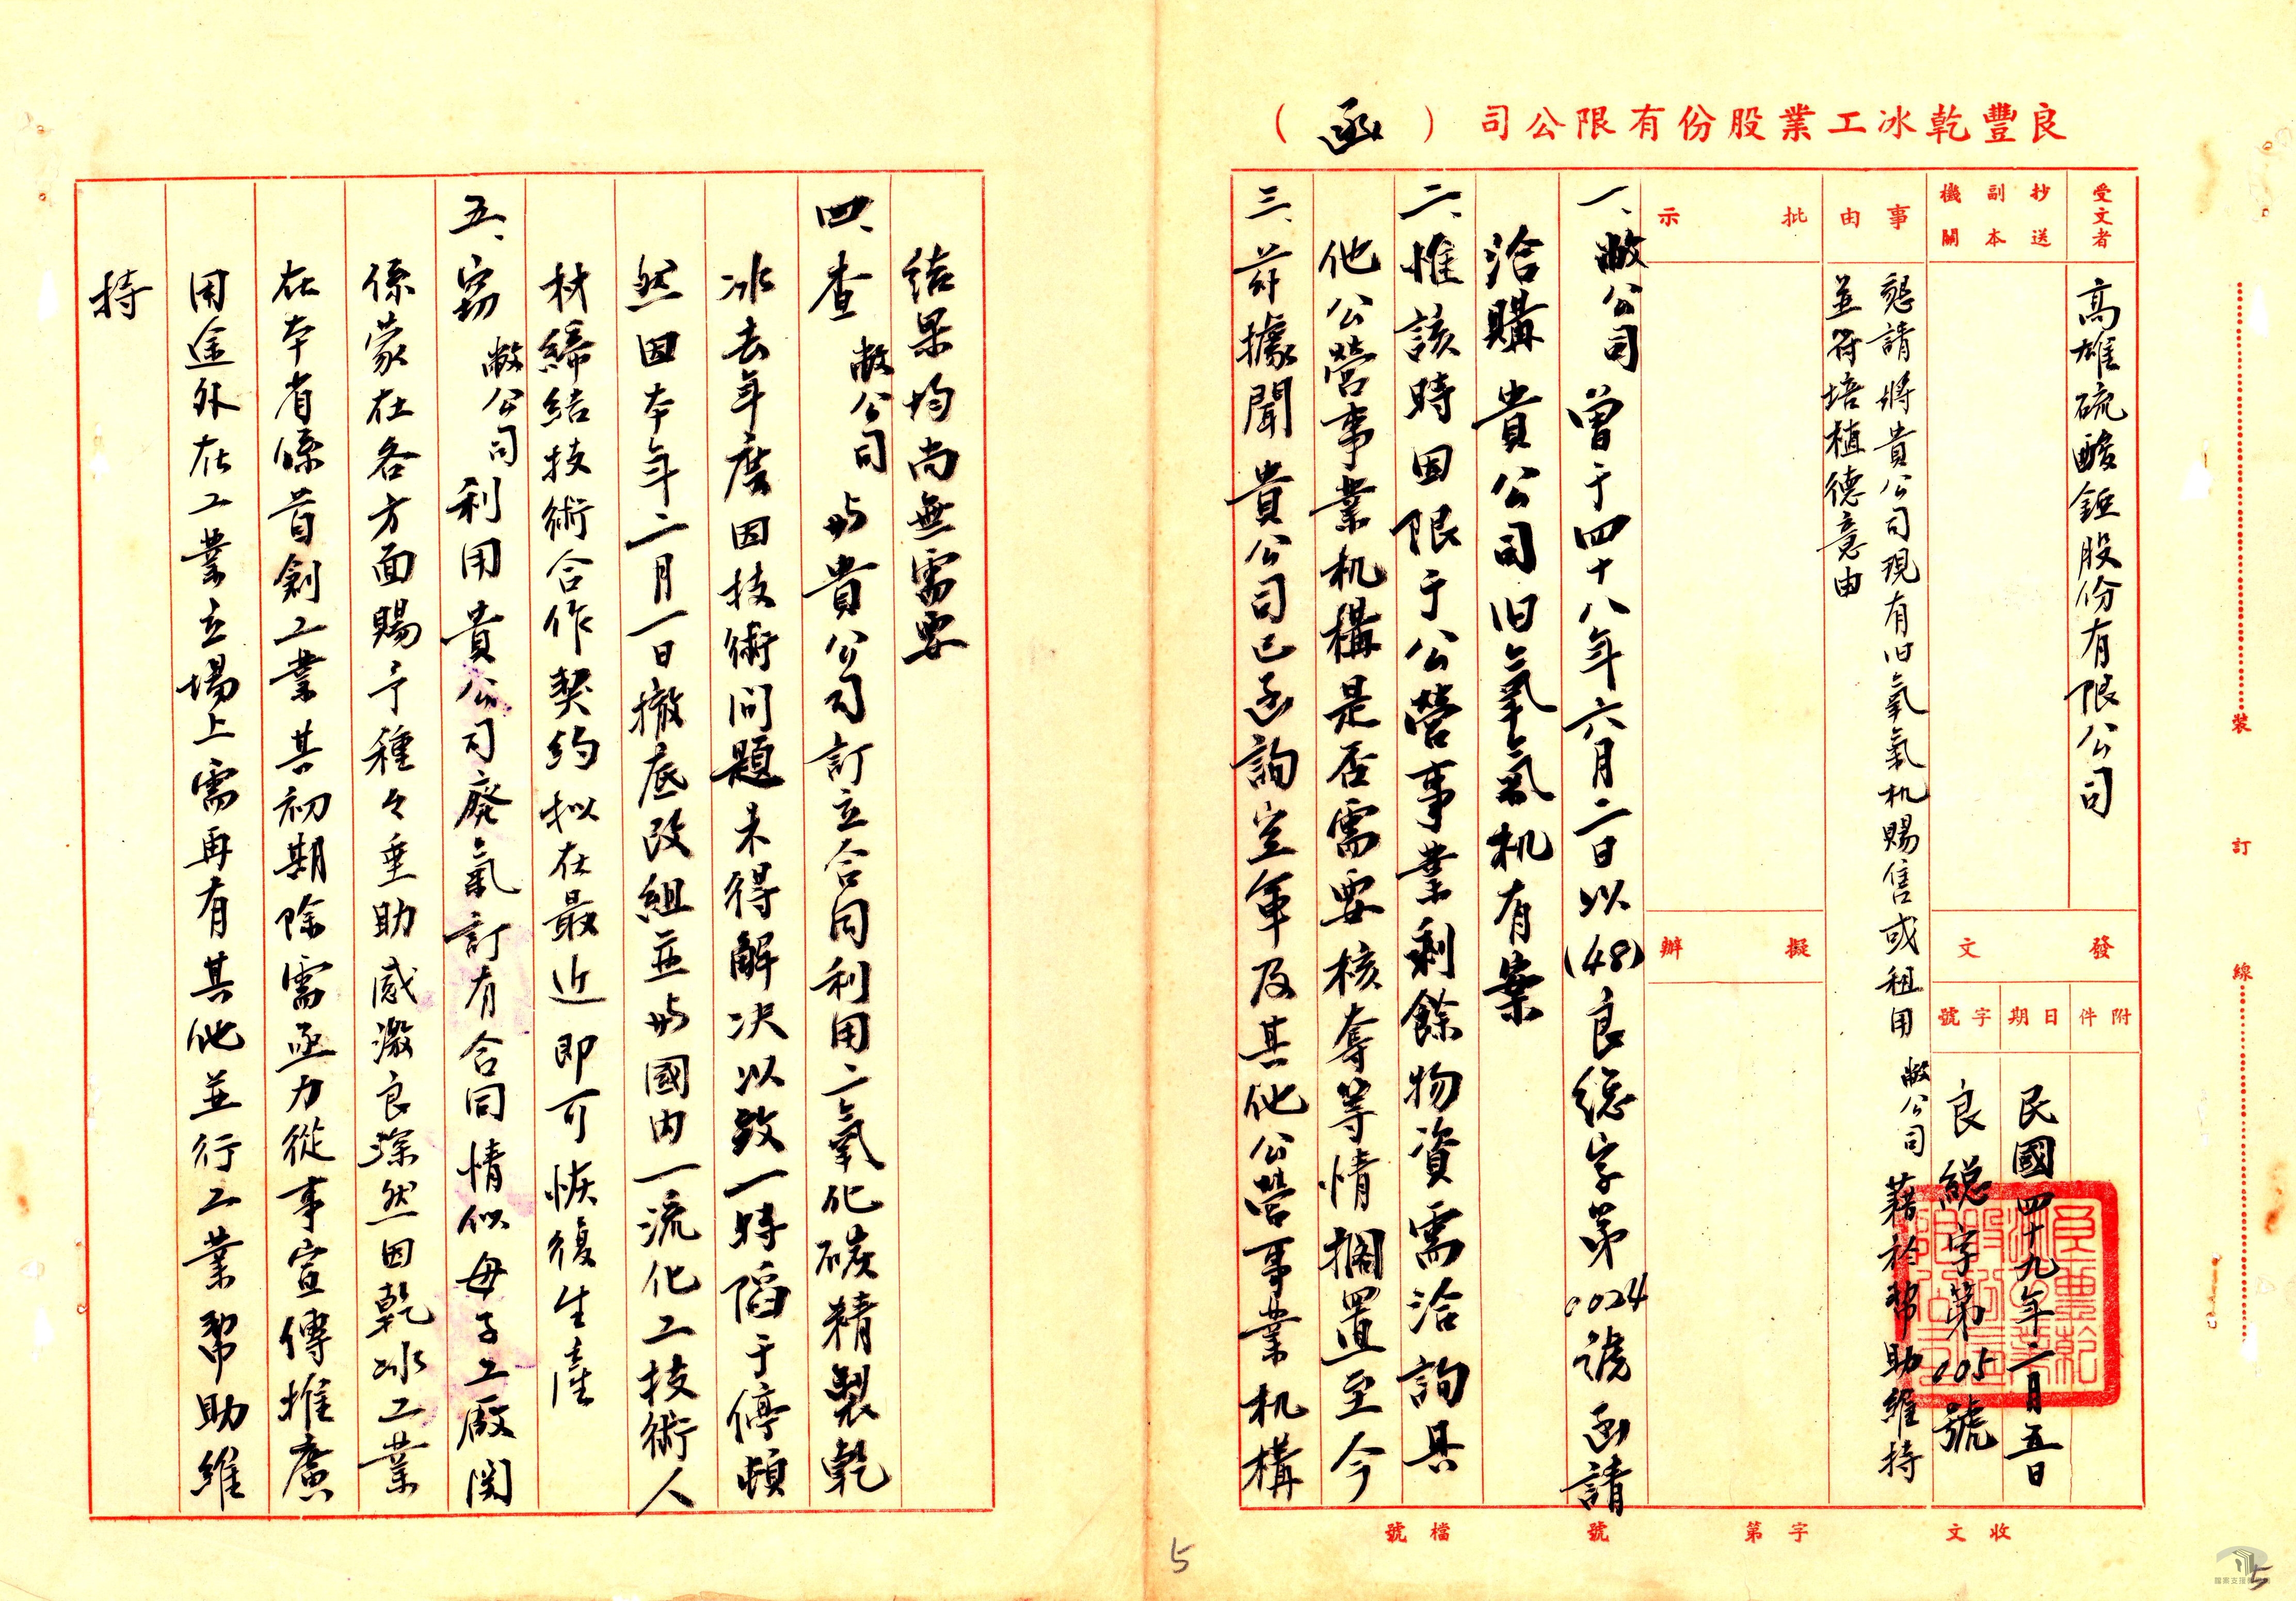 良豐乾冰工業股份有限公司（函）
受文者
高雄硫酸錏股份有限公司
抄送副本機關
發文
附件
日期
民國四十九年二月五日
字號
良總字第005號
事由
懇請將貴公司現有旧氧氣机賜售或租用敝公司藉於幫助維持
並符培植德意由
批示
擬辦
一、敝公司曾于四十八年六月二日以(48)良總字第0024號函請
洽購貴公司旧氧氣机有案
二、惟該時因限于公營事業剩餘物資需洽詢其
他公營事業机構是否需要核奪等情擱置至今
三、茲據聞貴公司已函詢空軍及其他公營事業机構
收文
字第
號
檔號
裝
訂
線
結果均尚無需要
四、查敝公司与貴公司訂立合同利用二氧化碳精製乾
冰去年度因技術问題未得解决以致一時陷于停頓
然因本年二月一日撤底改組並与國内一流化工技術人
材締結技術合作契約拟在最近即可恢復生產
五、竊敝公司利用貴公司廢氣訂有合同情似母子工廠関
係蒙在各方面賜予種々垂助感激良深然因乾冰工業
在本省係首創工業其初期除需亟力從事宣傳推廣
用途外在工業立場上需再有其他並行工業幫助維
持
5
5